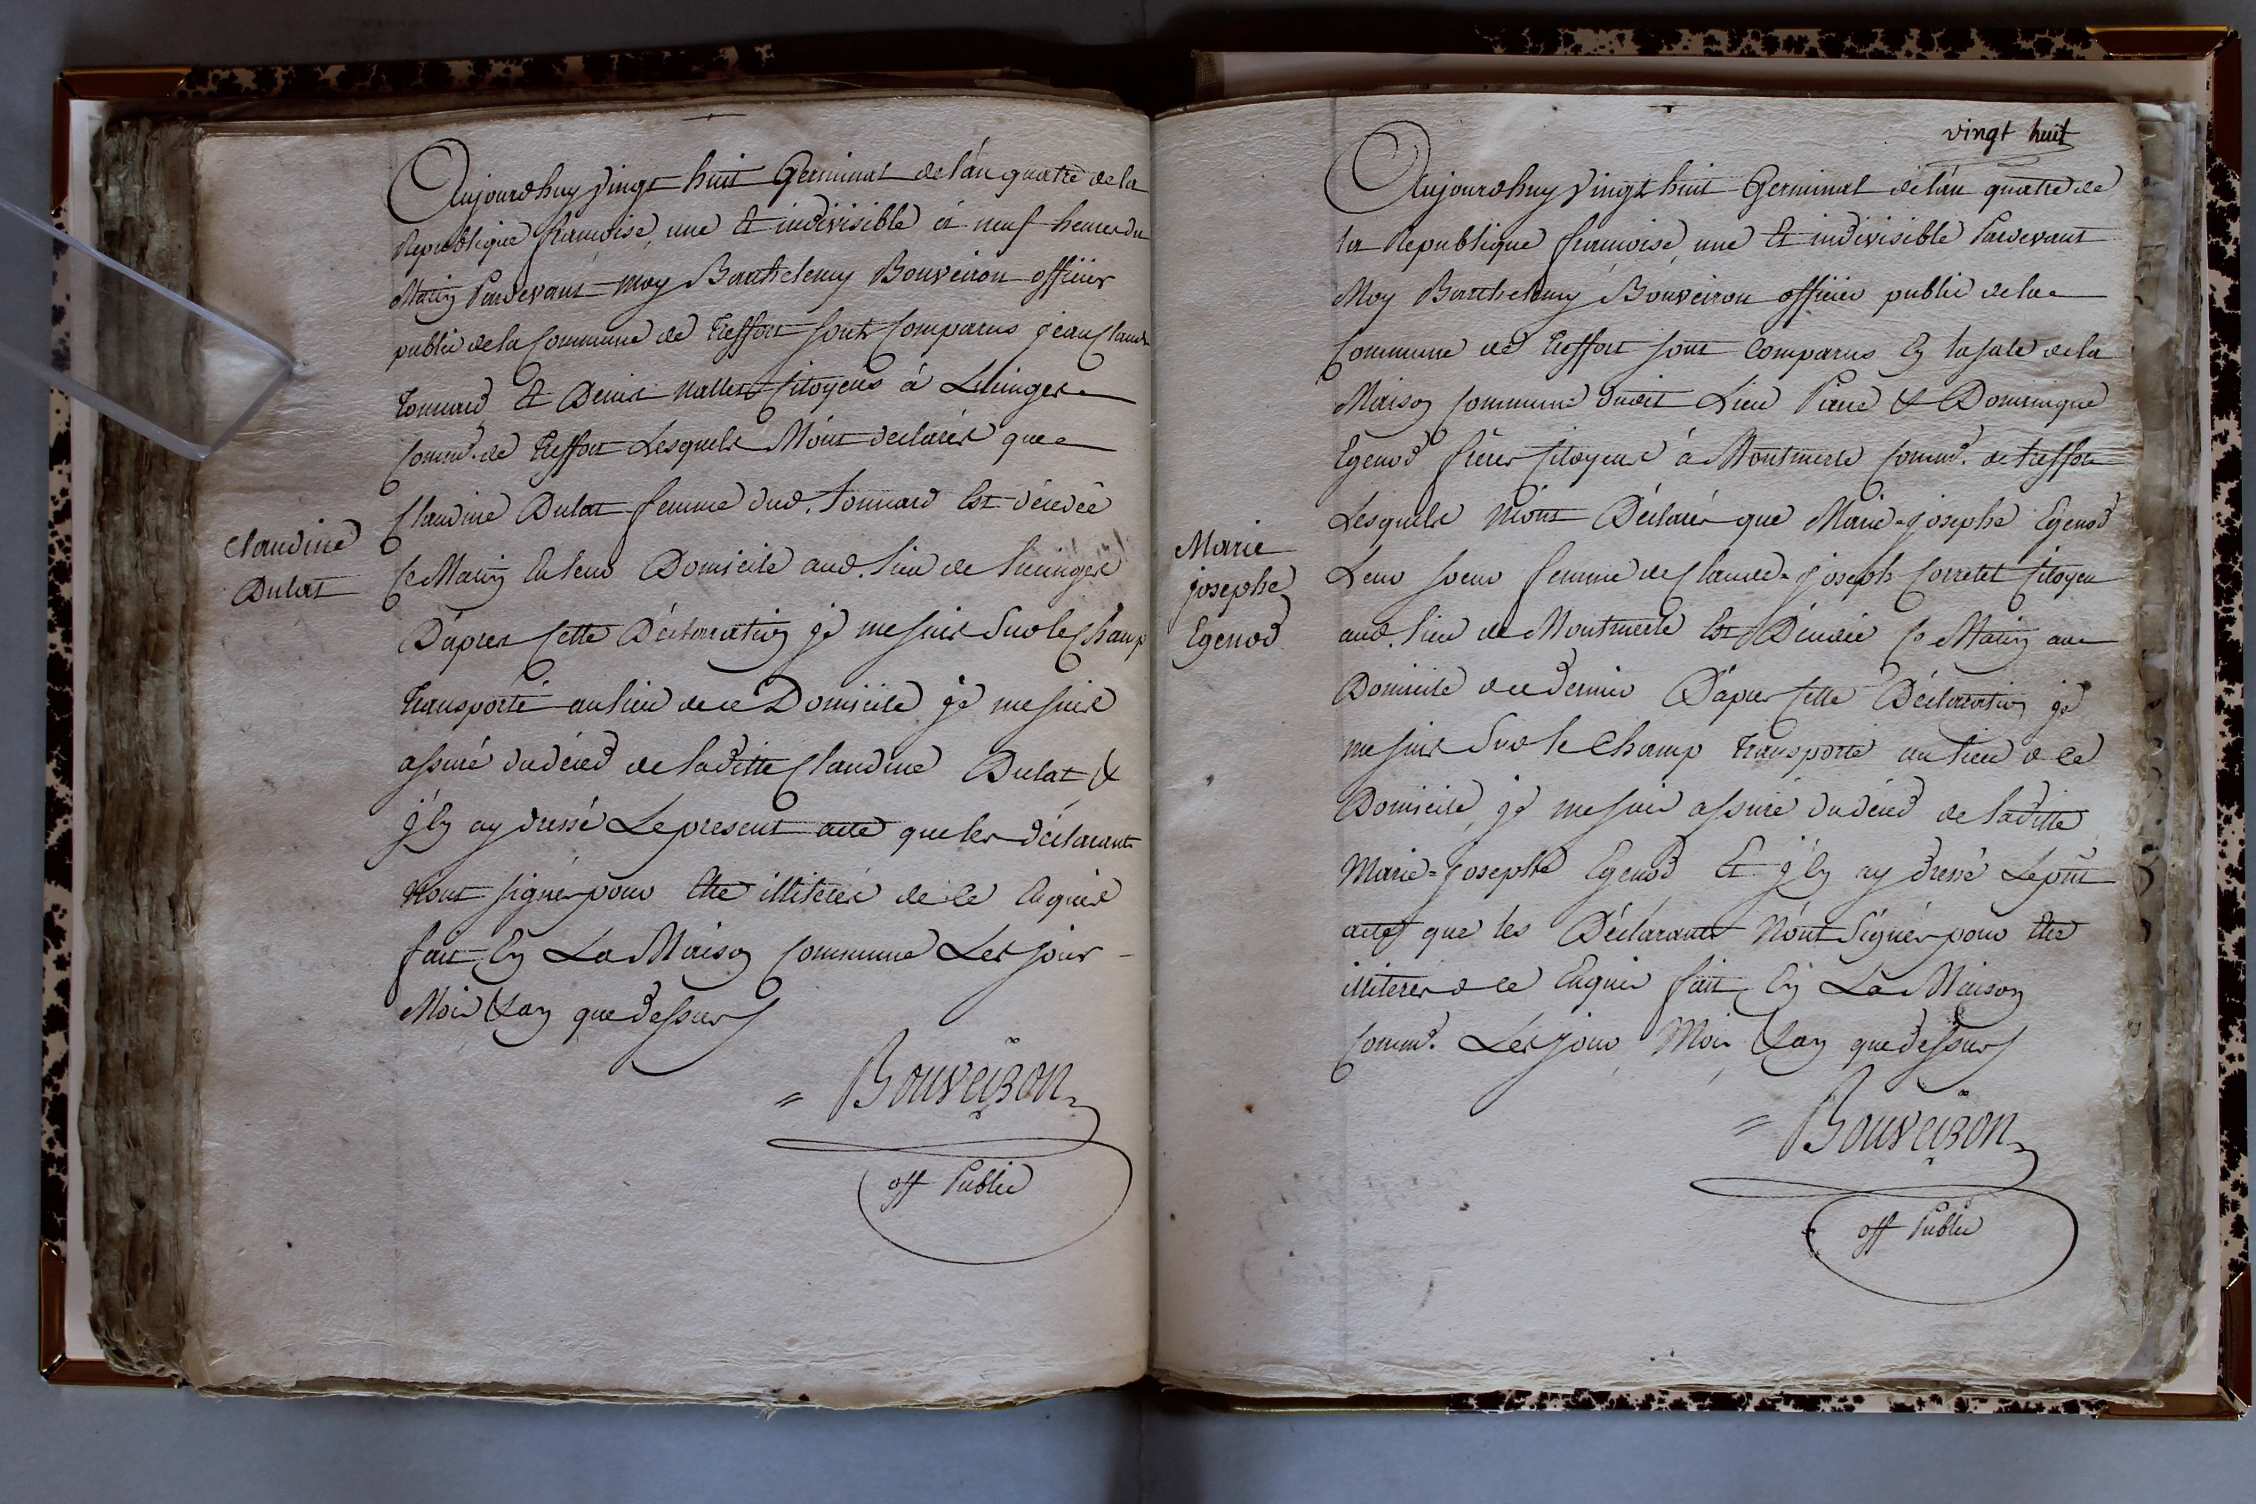 Aujourdhuy vingt huit Germinal de l'an quatre de la
Republique francoise, une et indivisible à neuf heures du
Matin Pardevant moy Barthelemy Bouveiron officier
public de la Commune de Treffort sont Comparus jean Claude
Tonnard et Denis Mallet Citoyens à
Comm.e de Treffort Lesquels M'ont declarés que
Claudine Dulat femme dud. Tonnard Est décedée
Ce Matin En leur Domicile aud. lieu de
Claudine
Dulat
D'apres Cette Déclaration je me suis Sur le Champ
Transporté au lieu de ce Domicile je me suis
assuré du décéd de laditte Claudine Dulat &
j'En ay dressé Le present acte que les déclarants
N'ont signé pour Etre illiterés de ce Enquis
fait En La Maison Commune Les jour
Mois & an que dessus
Bouveiron
off Public
vingt huit
Aujourdhuy vingt huit Germinal de l'an quatre de
la Republique francoise, une et indivisible Pardevant
Moy Barthelemy Bouveiron officier public de la
Commune de Treffort sont Comparus En la sale de la
Maison Commune dudit Lieu Piere & Dominique
Egenod freres Citoyens à Montmerle Comm.e de treffort
Lesquels M'ont Déclarés que Marie-josephe Egenod
Marie
josephe
Egenod
Leur soeur femme de Claude-joseph Corretet Citoyen
aud. lieu de Montmerle Est Décedée Ce Matin au
Domicile de ce dernier D'apres Cette Déclaration je
me suis Sur le Champ Transporté au lieu de ce
Domicile, je me suis assuré du décéd de laditte
Marie-josephe Egenod Et j'En ay dressé Le pñt
acte que les Déclarants N'ont Signés pour Etre
illiterés de ce Enquis fait En La Maison
Comm.e Les jour Mois & an que dessus
Bouveiron
off Public